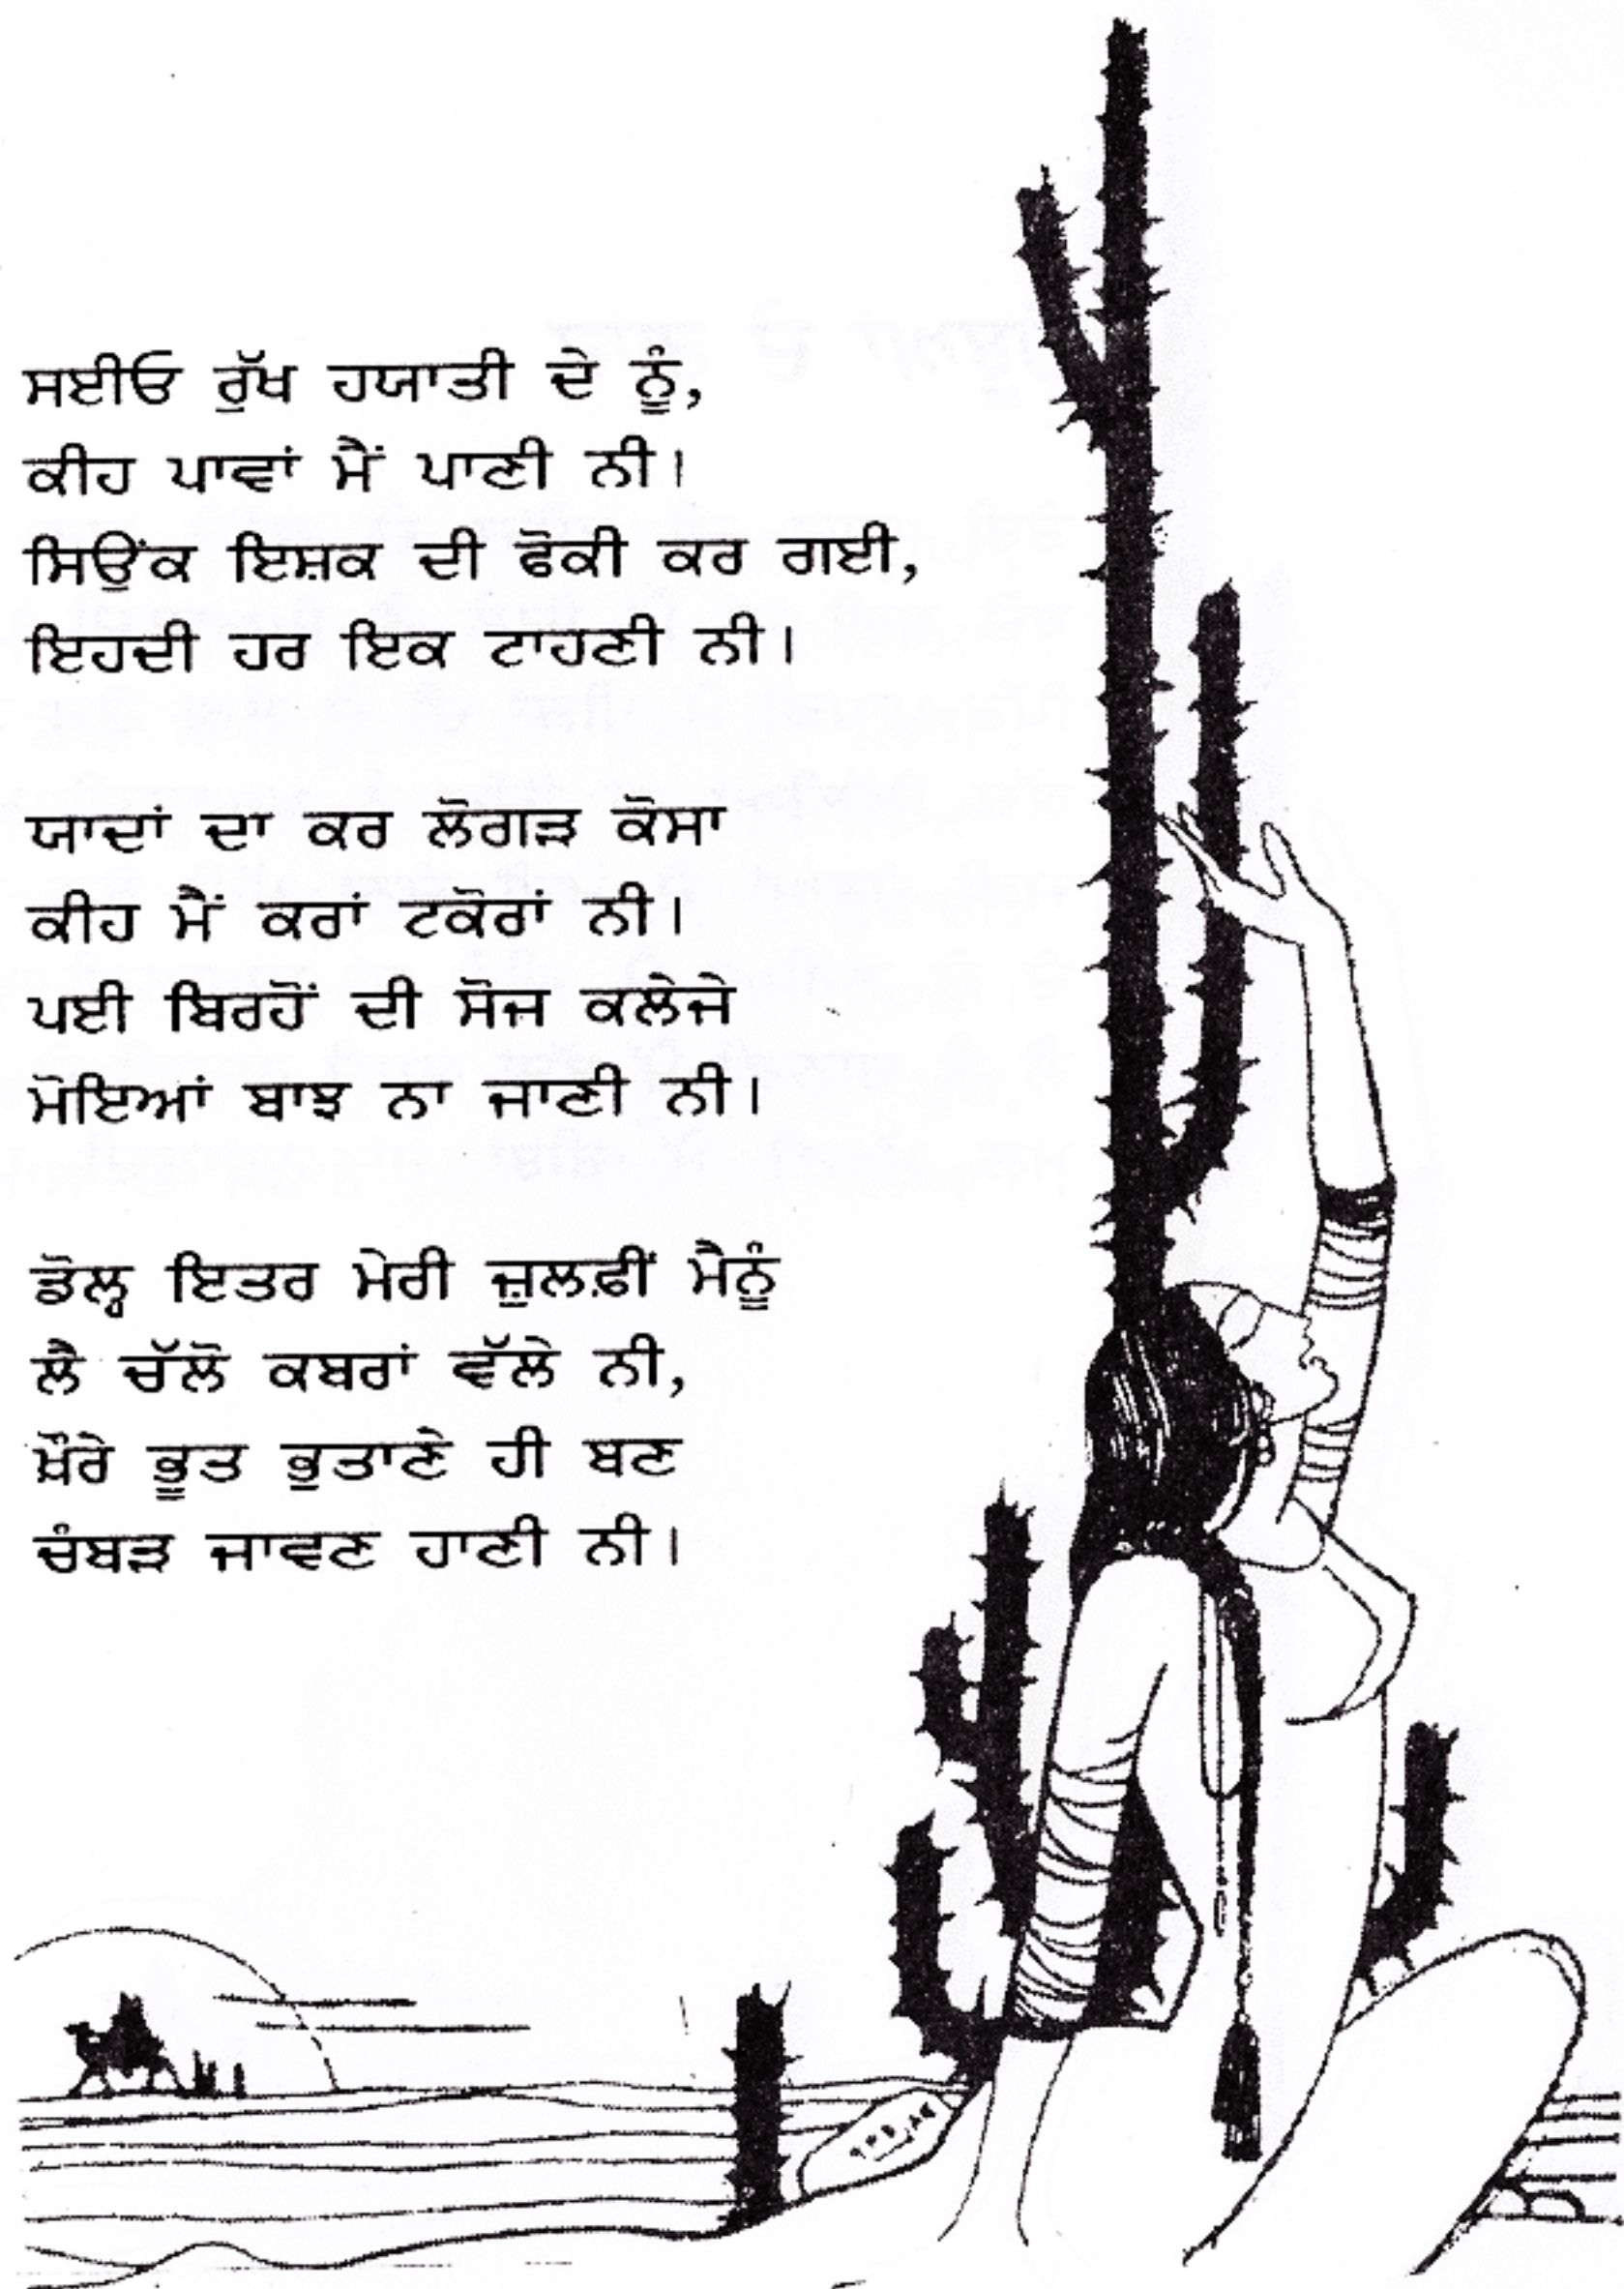 ਸਈਓ ਰੁੱਖ ਹਯਾਤੀ ਦੇ ਨੂੰ,
ਕੀਹ ਪਾਵਾਂ ਮੈਂ ਪਾਣੀ ਨੀ।
ਸਿਉਂਕ ਇਸ਼ਕ ਦੀ ਫੋਕੀ ਕਰ ਗਈ,
ਇਹਦੀ ਹਰ ਇਕ ਟਾਹਣੀ ਨੀ।
ਯਾਦਾਂ ਦਾ ਕਰ ਲੋਗੜ ਕੋਸਾ
ਕੀਹ ਮੈਂ ਕਰਾਂ ਟਕੋਰਾਂ ਨੀ।
ਪਈ ਬਿਰਹੋਂ ਦੀ ਸੋਜ ਕਲੇਜੇ
ਮੋਇਆਂ ਬਾਝ ਨਾ ਜਾਣੀ ਨੀ।
ਡੋਲ੍ਹ ਇਤਰ ਮੇਰੀ ਜ਼ੁਲਫ਼ੀਂ ਮੈਨੂੰ
ਲੈ ਚੱਲੋ ਕਬਰਾਂ ਵੱਲੇ ਨੀ,
ਖ਼ੌਰੇ ਭੂਤ ਭੁਤਾਣੇ ਹੀ ਬਣ
ਚੰਬੜ ਜਾਵਣ ਹਾਣੀ ਨੀ।